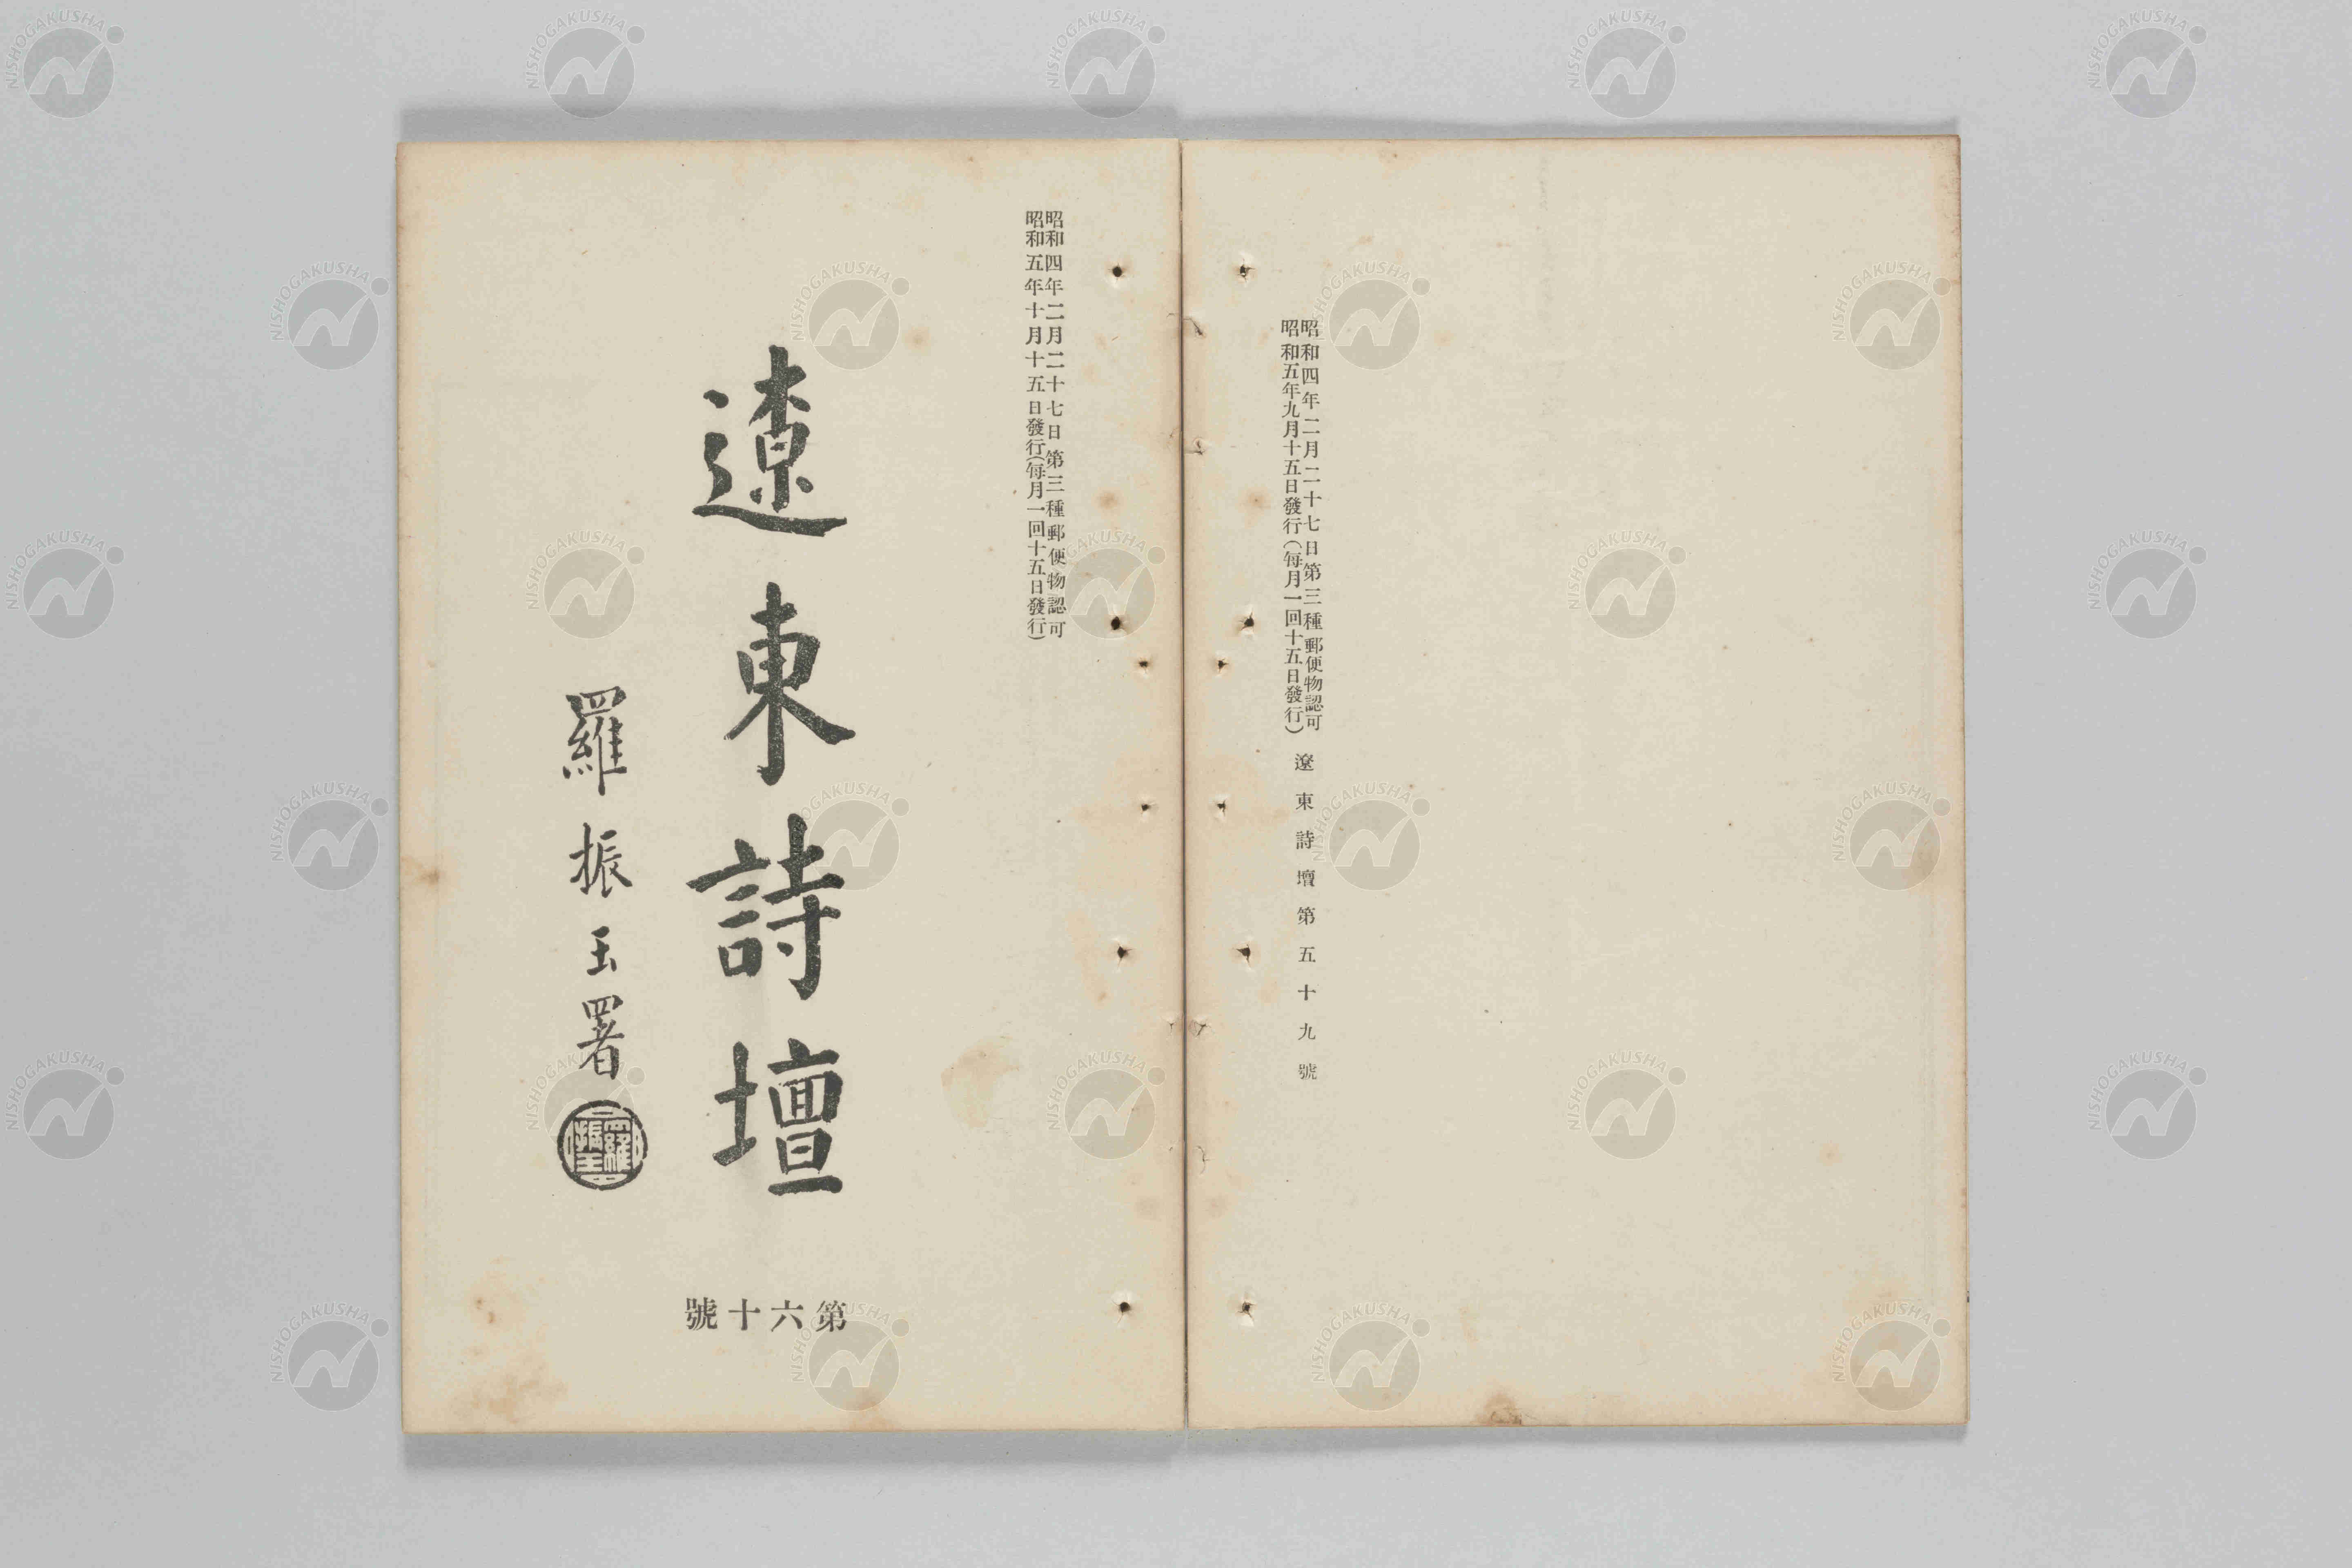 昭和四年二月二十七日第三種郵便物認可
昭和五年九月十五日發行(每月一回十五日發行)
遼東詩壇第五十九號
昭和四年二月二十七日第三種郵便物認可
昭和五年十月十五日發行(每月一回十五日發行)
遼東詩壇
羅振玉署
第六十號
NISHOGAKUSHA